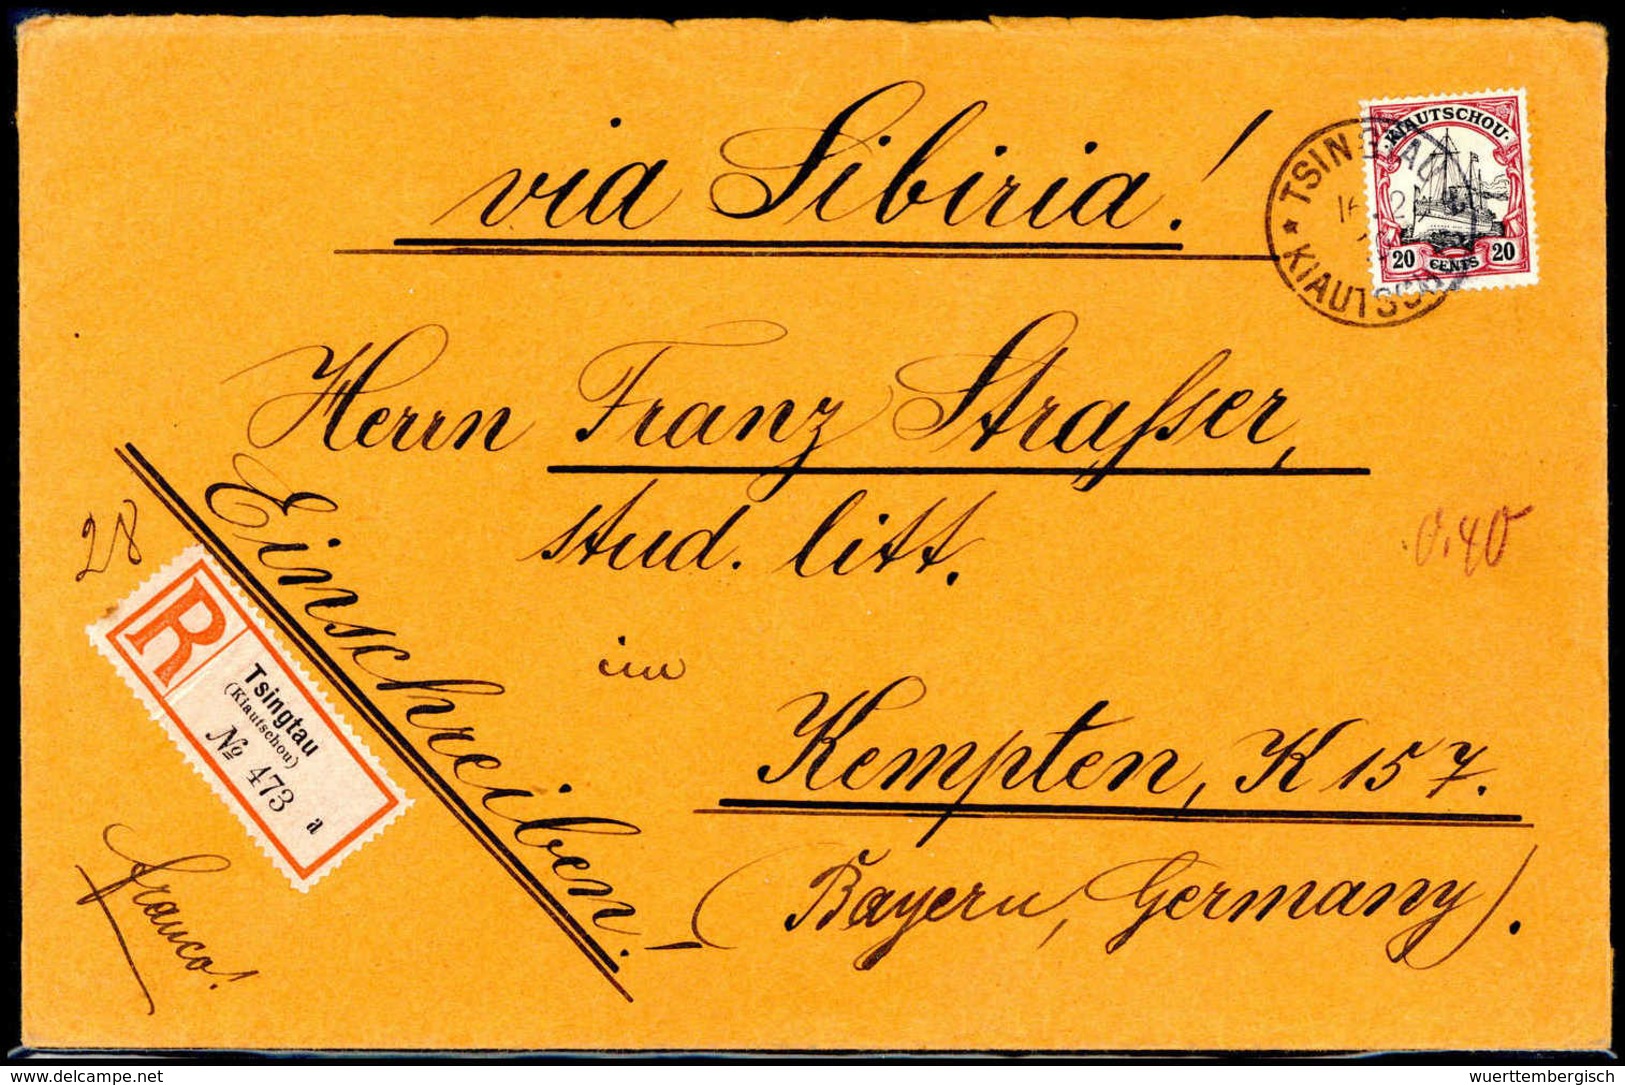 via Sibiria!
KIAUTSCHOU
20 CENTS 20
TSINGTAU
KIAUTSCHOU
Herrn Franz Strasser,
stud. litt.
in
Kempten, K 157.
(Bayern, Germany).
Einschreiben!
28
0.40
R
Tsingtau
(Kiautschou)
No 473
a
franco!
delcampe.net
wuerttembergisch